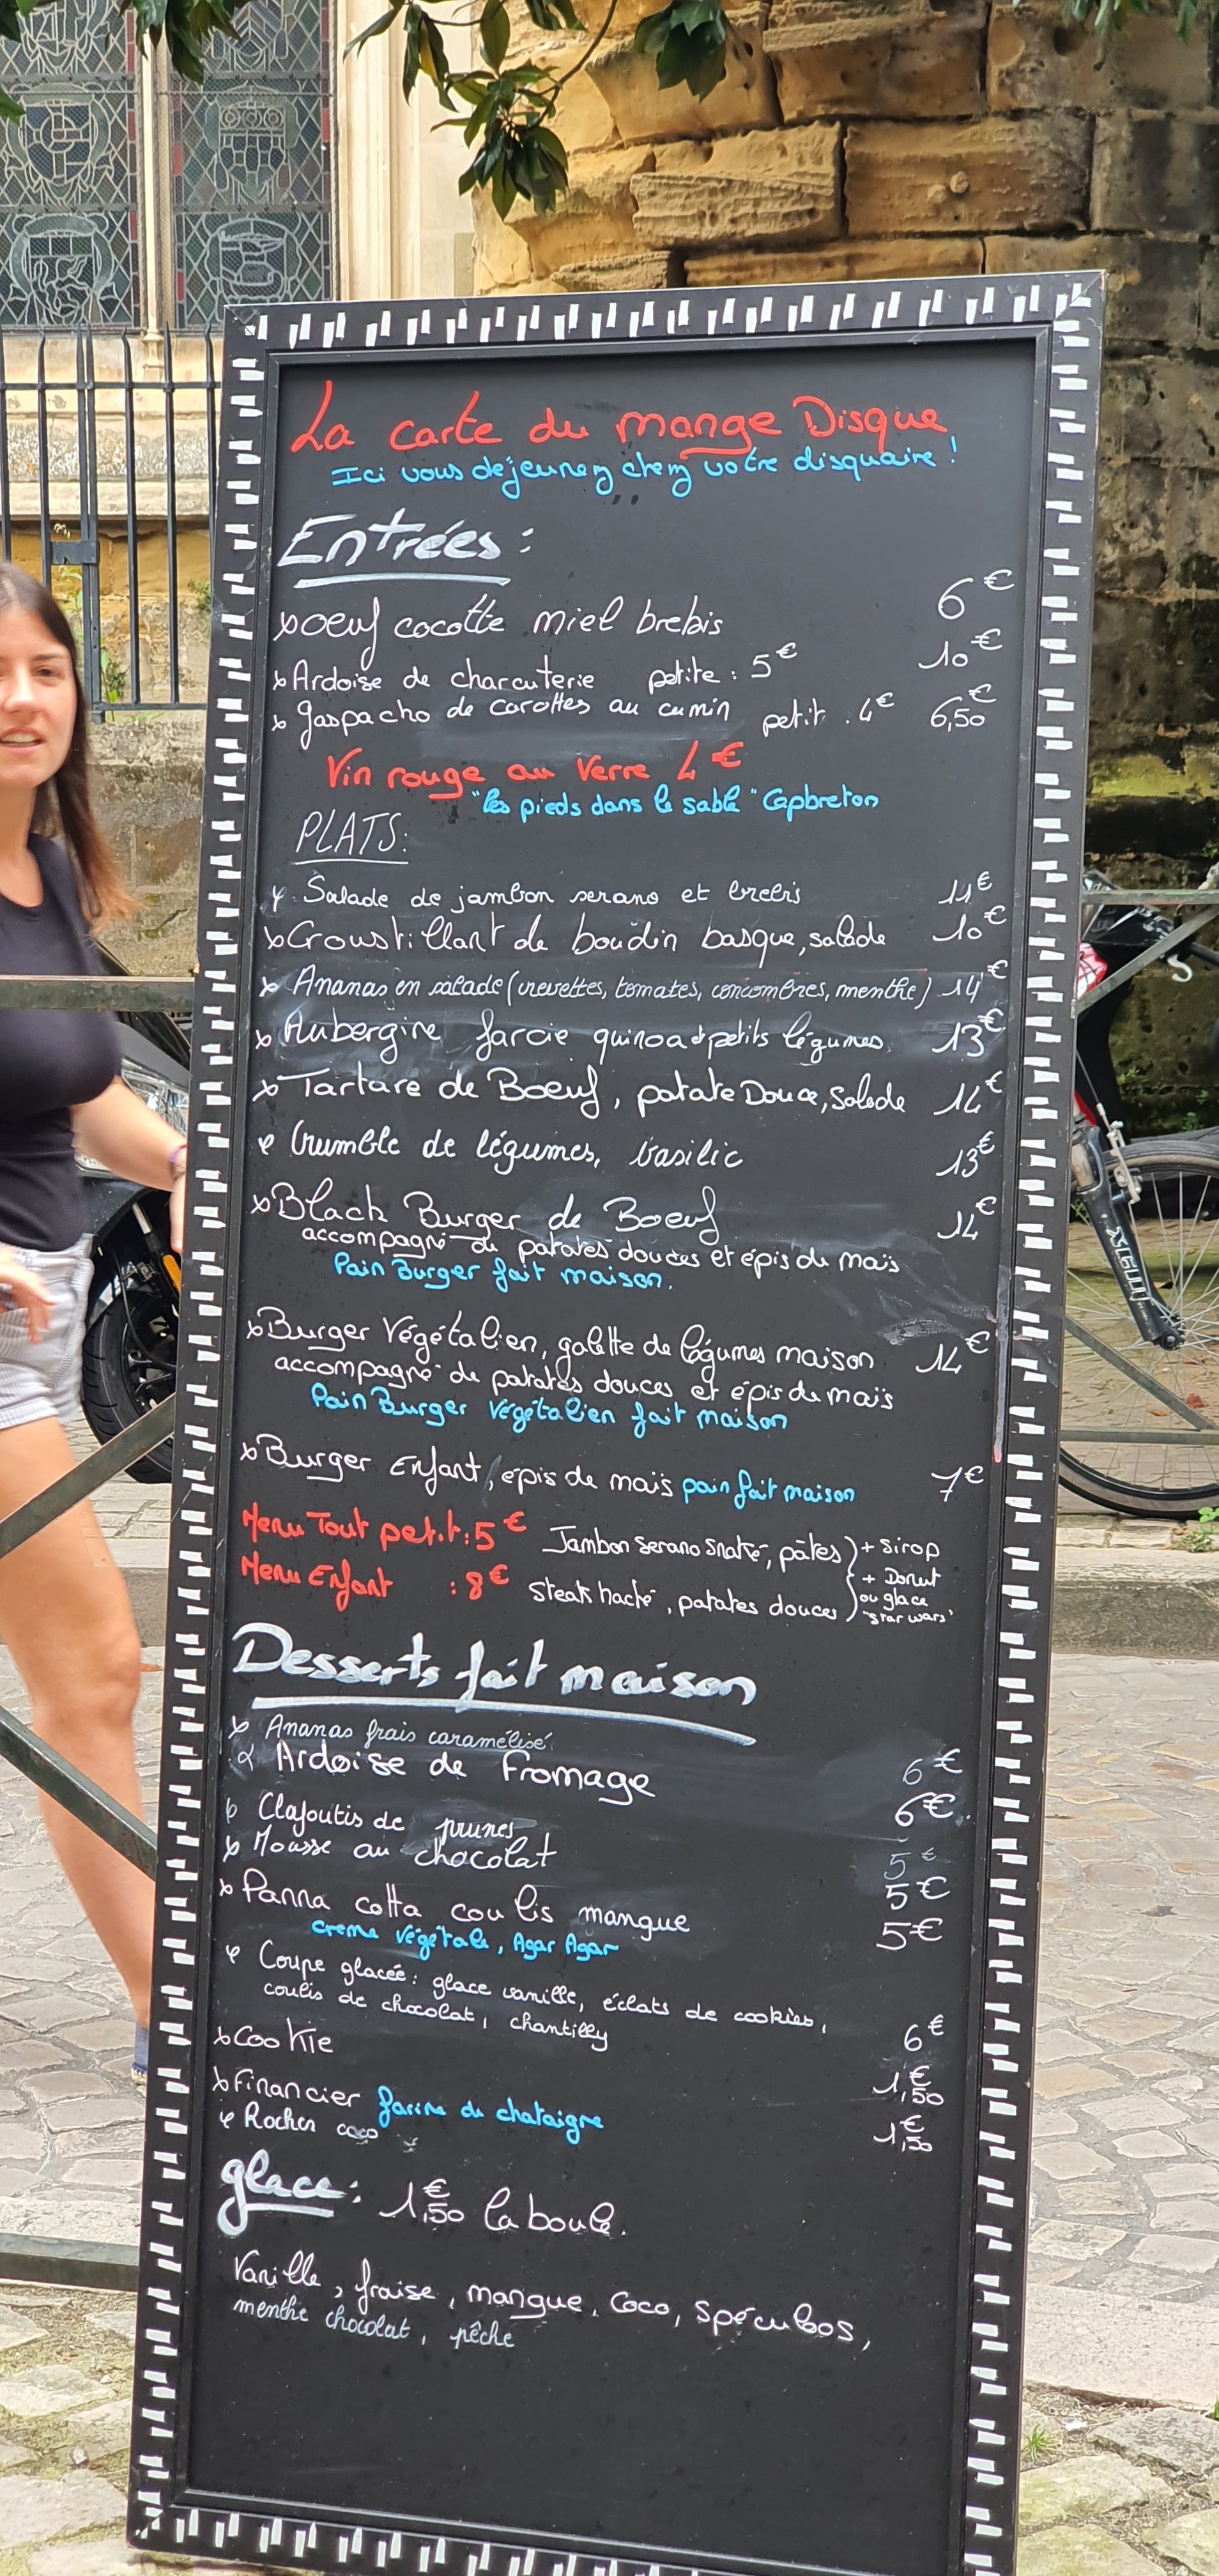 La carte du mange Disque
Ici vous dejeunez chez votre disquaire !
Entrées :
x oeuf cocotte miel brebis 6€
x Ardoise de charcuterie petite : 5€ 10€
x gaspacho de carottes au cumin petit . 4€ 6,50€
Vin rouge au Verre 4€
"les pieds dans le sable" Capbreton
PLATS :
x Salade de jambon serano et brebis 11€
x Croustillant de boudin basque, salade 10€
x Ananas en salade (crevettes, tomates, concombres, menthe) 14€
x Aubergine farcie quinoa + petits légumes 13€
x Tartare de Boeuf, patate Douce, Salade 14€
x Crumble de légumes, basilic 13€
x Black Burger de Boeuf 14€
accompagné de patates douces et épis de maïs
Pain Burger fait maison.
x Burger Végétalien, galette de légumes maison 14€
accompagné de patates douces et épis de maïs
Pain Burger Végétalien fait maison
x Burger Enfant, epis de maïs pain fait maison 7€
Menu Tout petit : 5€ Jambon serano snaké, pâtes + Sirop
Menu Enfant : 8€ Steak haché, patates douces + Donut
ou glace
"Star wars"
Desserts fait maison
x Ananas frais caramélisé 6€
x Ardoise de Fromage 6€
x Clafoutis de prunes 5€
x Mousse au chocolat 5€
x Panna cotta coulis mangue 5€
creme végétale, Agar Agar
x Coupe glacée : glace vanille, éclats de cookies,
coulis de chocolat, chantilly 6€
x Cookie 1€,50
x Financier farine de chataigne 1€,50
x Rocher coco
glace : 1€,50 la boule.
Vanille, fraise, mangue, Coco, Spéculoos,
menthe chocolat, pêche